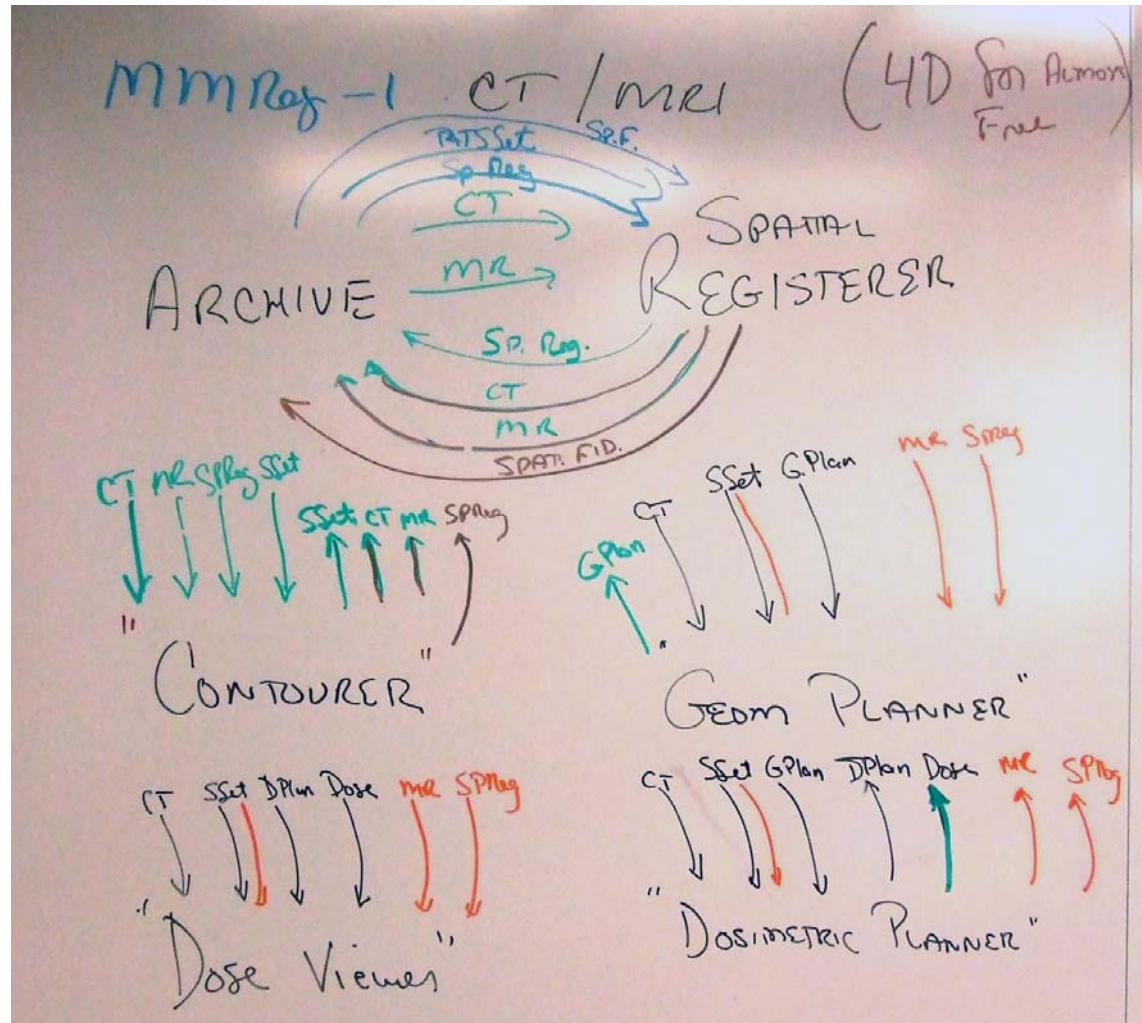 MMReg-1 CT/MRI (4D for Almost
Free)
SSet Sp.F.
Sp Reg
CT
MR
ARCHIVE
SPATIAL
REGISTERER
Sp. Reg.
CT
MR
SPAT. FID.
CT MR SPReg SSet
SSet CT MR SPReg
"CONTOURER"
GPlan
CT SSet G.Plan MR SPReg
"GEOM PLANNER"
CT SSet DPlan Dose MR SPReg
"Dose Viewer"
CT SSet GPlan DPlan Dose MR SPReg
"DOSIMETRIC PLANNER"